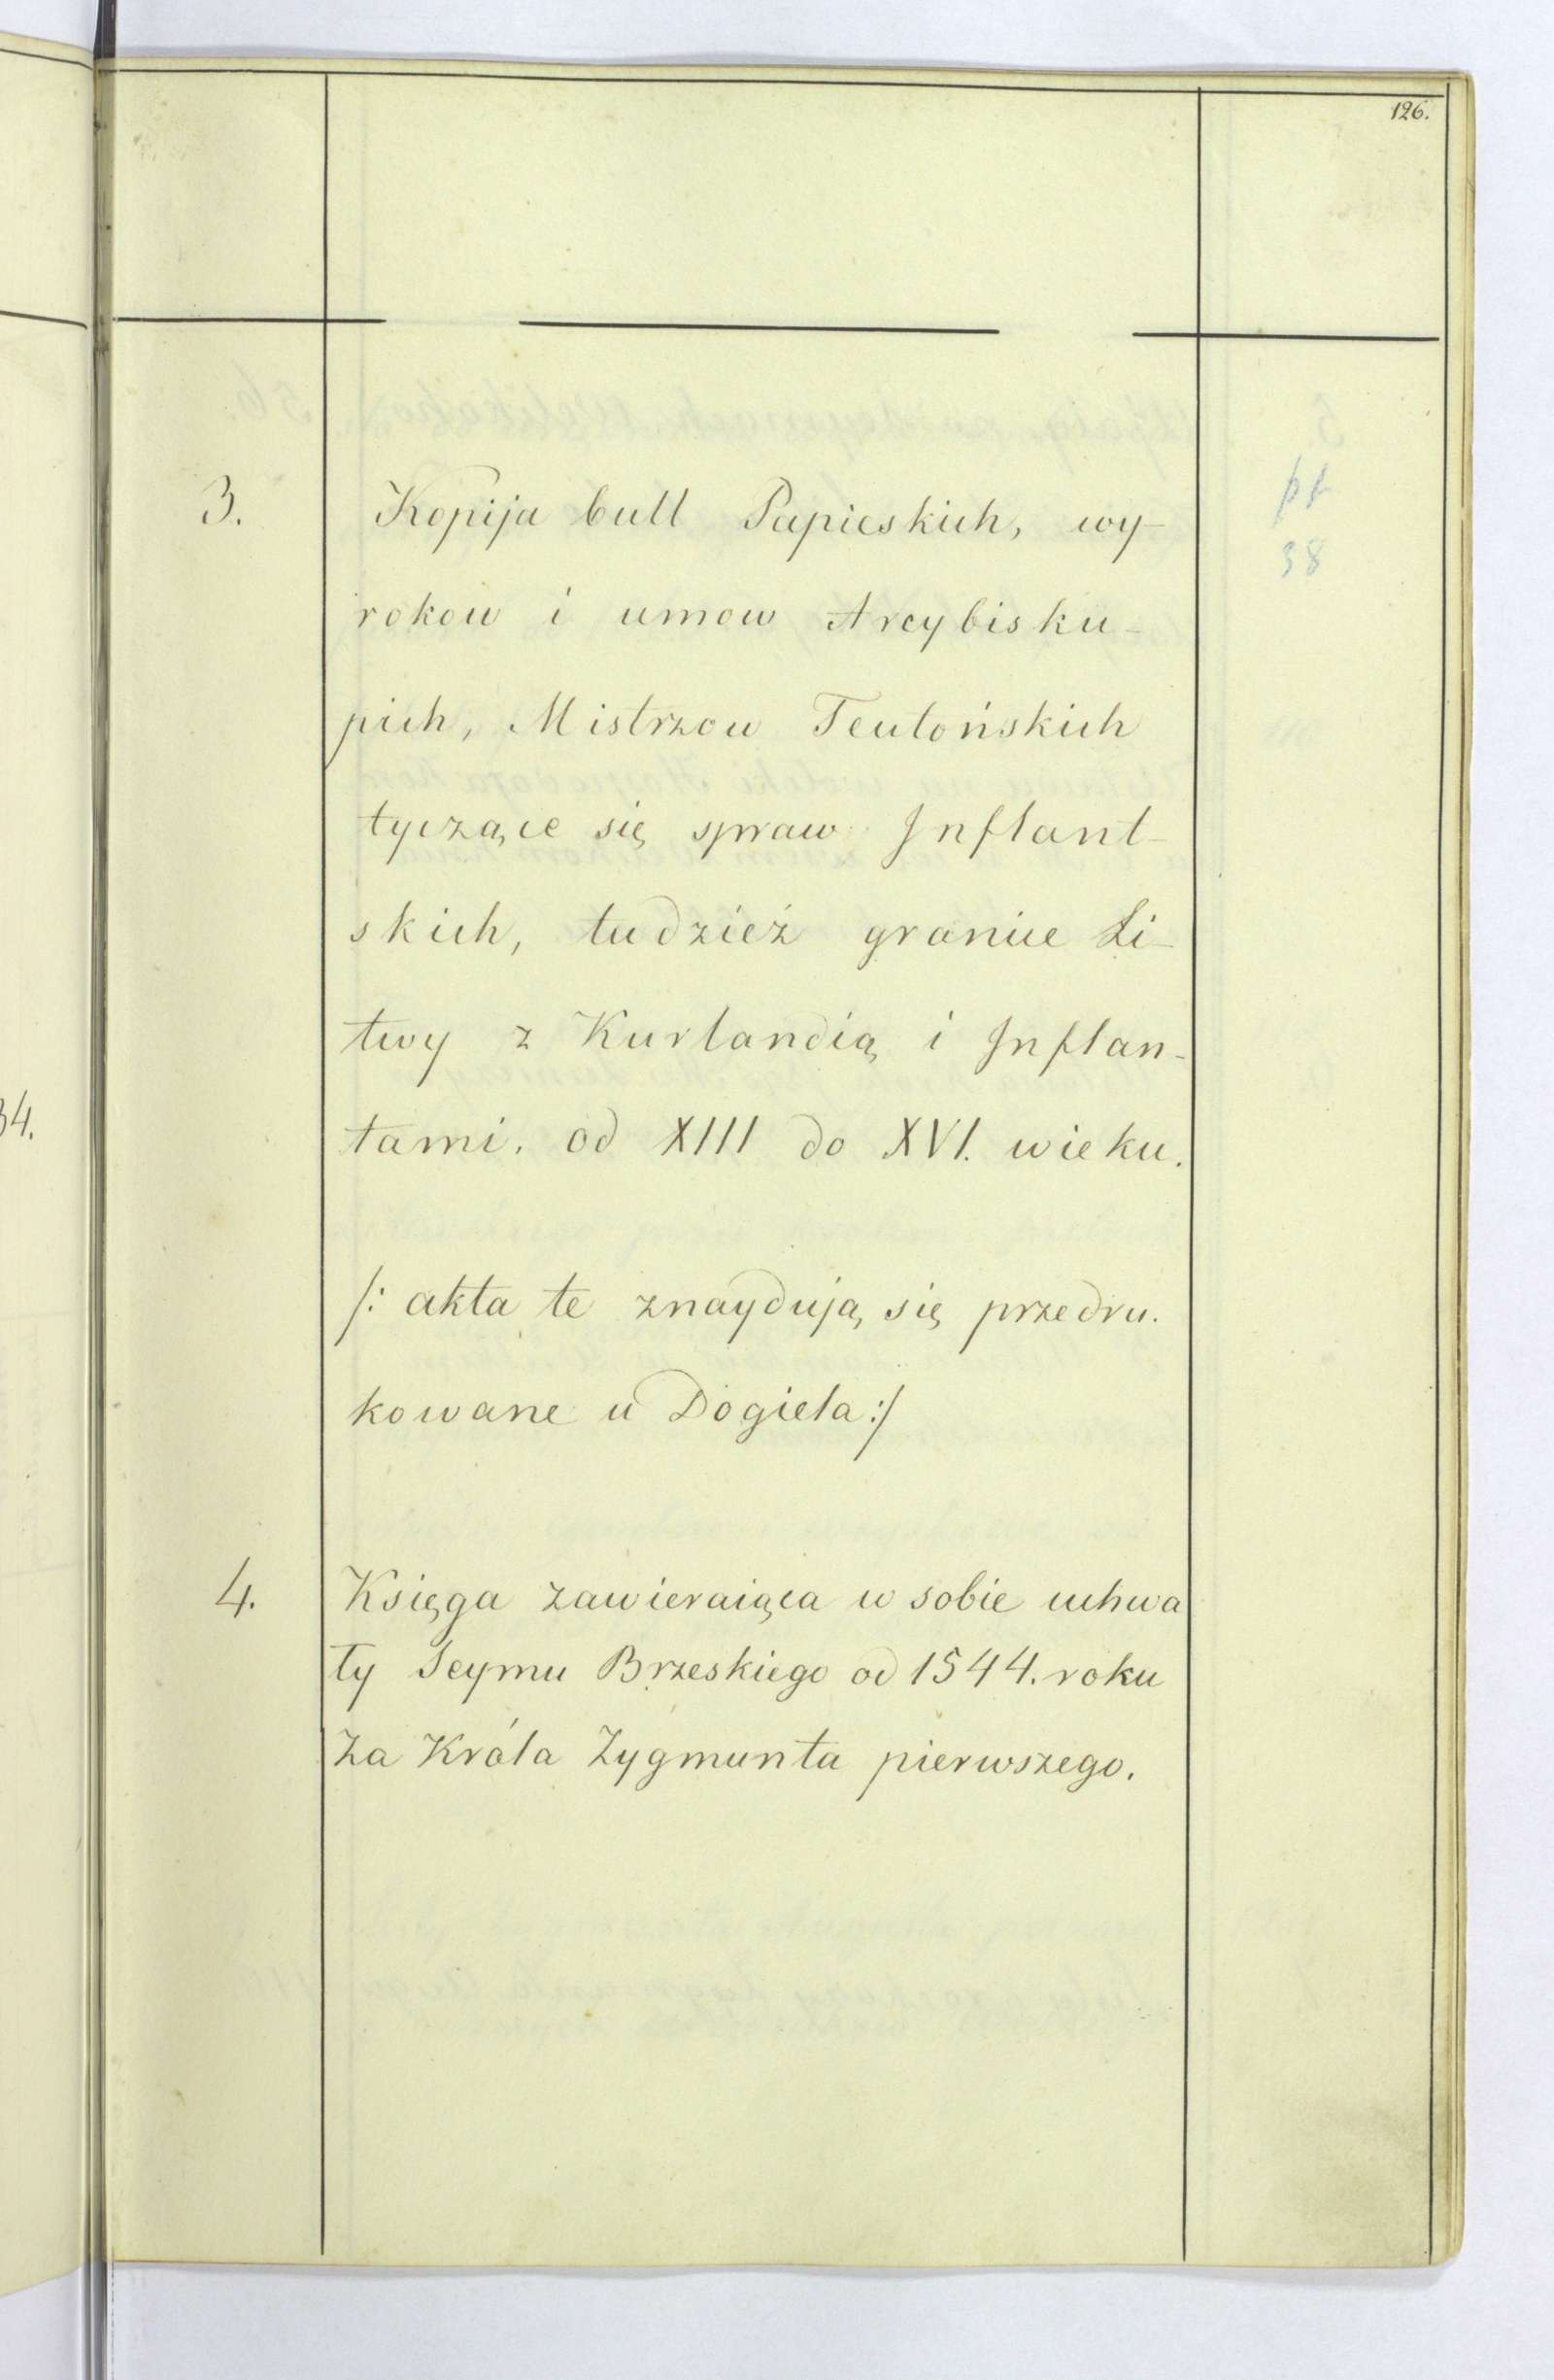 126.
3.
Kopija bull Papieskich, wy-
rokow i umow Arcybisku-
pich, Mistrzow Teutońskich
tyczące się spraw Inflant-
skich, tudzież granice Li-
twy z Kurlandią i Inflan-
tami. od XIII do XVI. wieku.
/: akta te znaydują się przedru.
kowane u Dogiela :/
4.
Księga zawieraiąca w sobie uchwa
ły Seymu Brzeskiego od 1544. roku
za Króla Zygmunta pierwszego.
38
34.